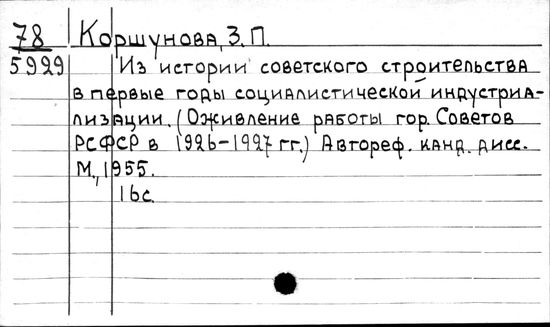 78 Коршунова, З. П.
5929 Из истории советского строительства
в первые годы социалистической индустриа-
лизации. (Оживление работы гор. Советов
РСФСР в 1926-1927 гг.) Автореф. канд. дисс.
М., 1955.
16с.